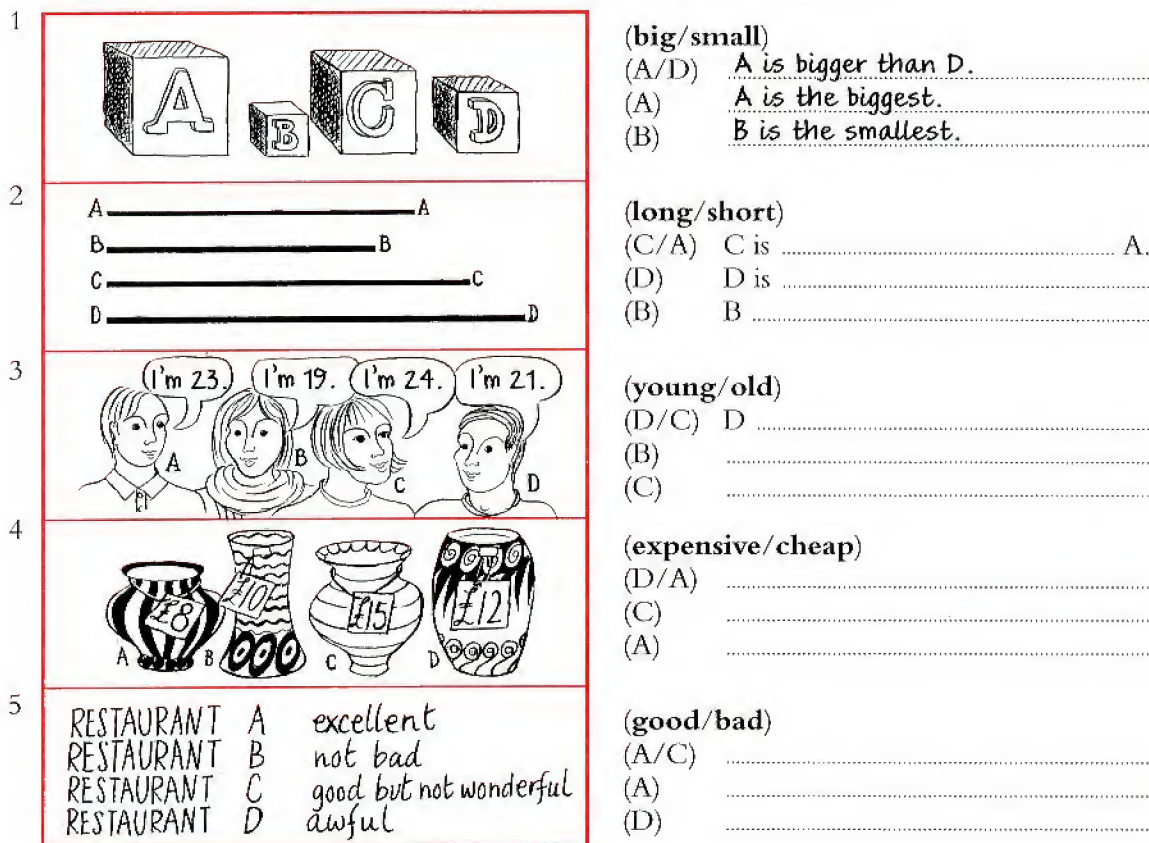 1
A
B
C
D
(big/small)
(A/D) A is bigger than D.
(A) A is the biggest.
(B) B is the smallest.
2
A A
B B
C C
D D
(long/short)
(C/A) C is ........ A.
(D) D is ........
(B) B ........
3
I'm 23. I'm 19. I'm 24. I'm 21.
A B C D
(young/old)
(D/C) D ........
(B) ........
(C) ........
4
£8 £10 £15 £12
A B C D
(expensive/cheap)
(D/A) ........
(C) ........
(A) ........
5
RESTAURANT A excellent
RESTAURANT B not bad
RESTAURANT C good but not wonderful
RESTAURANT D awful
(good/bad)
(A/C) ........
(A) ........
(D) ........